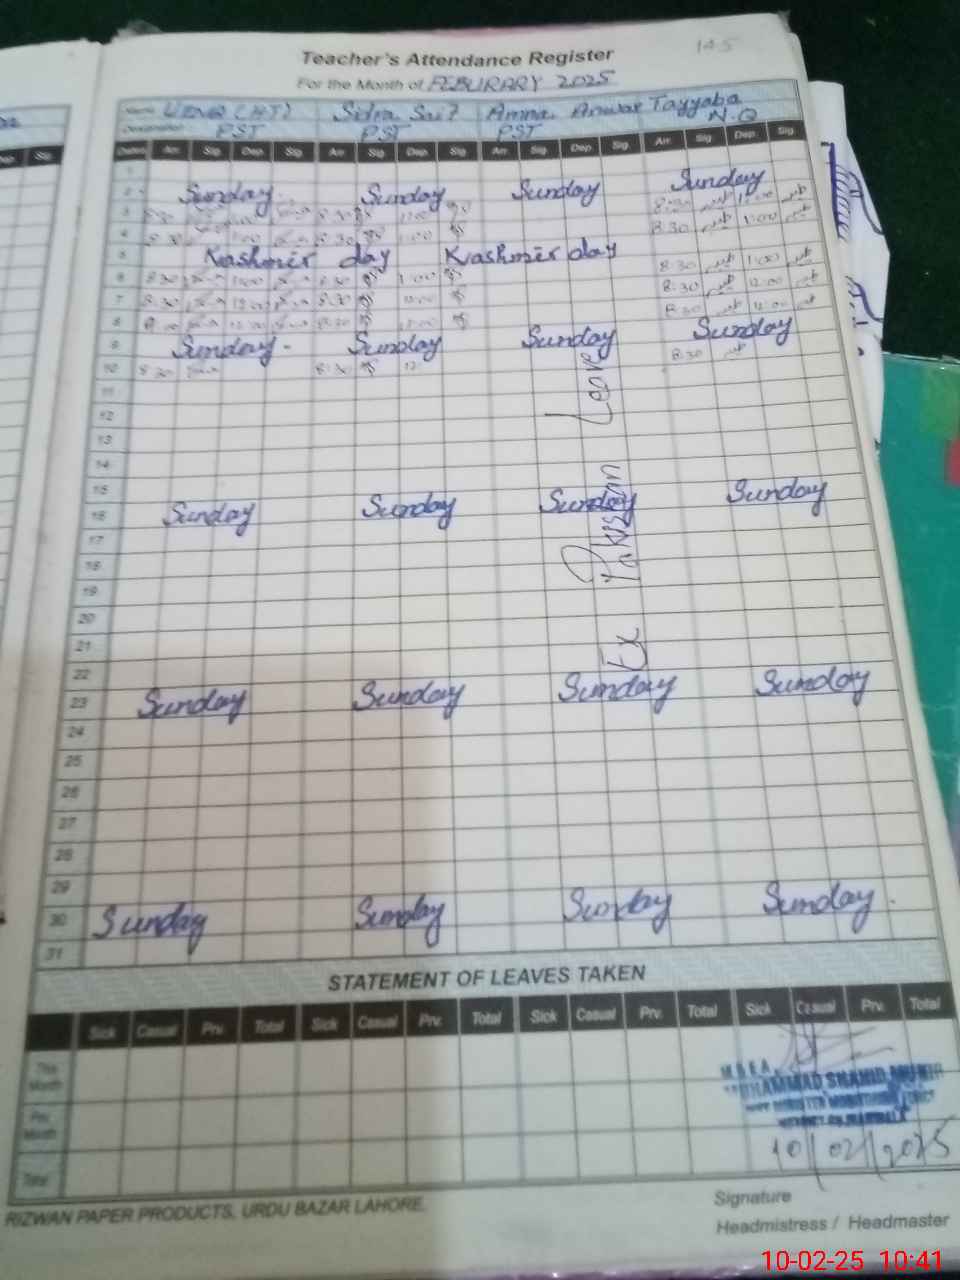 145
Teacher's Attendance Register
For the Month of FEBURARY 2025
Name Sidra Saif Amna Anwar Tayyaba
Designation PST PST PST N.Q
Dates Arr. Sig. Dep. Sig. Arr. Sig. Dep. Sig. Arr. Sig. Dep. Sig. Arr. Sig. Dep. Sig.
1
2 Sunday Sunday Sunday Sunday
3 8:30 8:30 12:00 8:30
4 8:30 1:00 8:30 1:00 8:30 1:00
5 Kashmir day Kashmir day
6 8:30 1:00 8:30 1:00 8:30 1:00
7 8:30 12:00 8:30 12:00 8:30 12:00
8 8:30 8:30 12:00
9 Sunday Sunday Sunday Sunday
10 8:30 8:30 12 8:30
11
12
13
14
15
16 Sunday Sunday Sunday Sunday
17
18
19
20
21
22
23 Sunday Sunday Sunday Sunday
24
25
26
27
28
29
30 Sunday Sunday Sunday Sunday
31
Ex Pakistan Leave
STATEMENT OF LEAVES TAKEN
Sick Casual Prv. Total Sick Casual Prv. Total Sick Casual Prv. Total Sick Casual Prv. Total
This Month
Prv. Month
Total
M.&.E.A
MUHAMMAD SHAHID
10/02/2025
RIZWAN PAPER PRODUCTS, URDU BAZAR LAHORE.
Signature
Headmistress / Headmaster
10-02-25 10:41